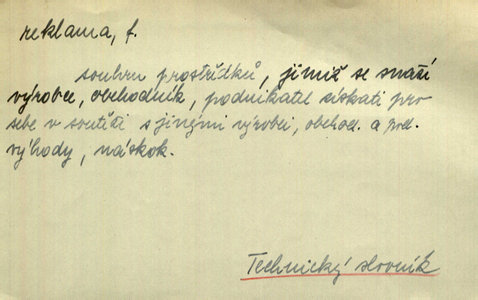 reklama, f.
souhrn prostředků, jimiž se snaží
výrobce, obchodník, podnikatel získati pro
sebe v soutěži s jinými výrobci, obchod. a pod.
výhody, náskok.
Technický slovník